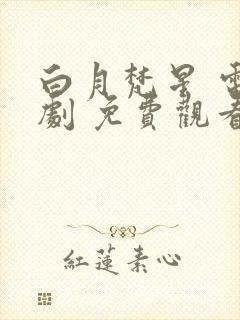 白月梵星 電
劇 免費觀看
紅蓮素心